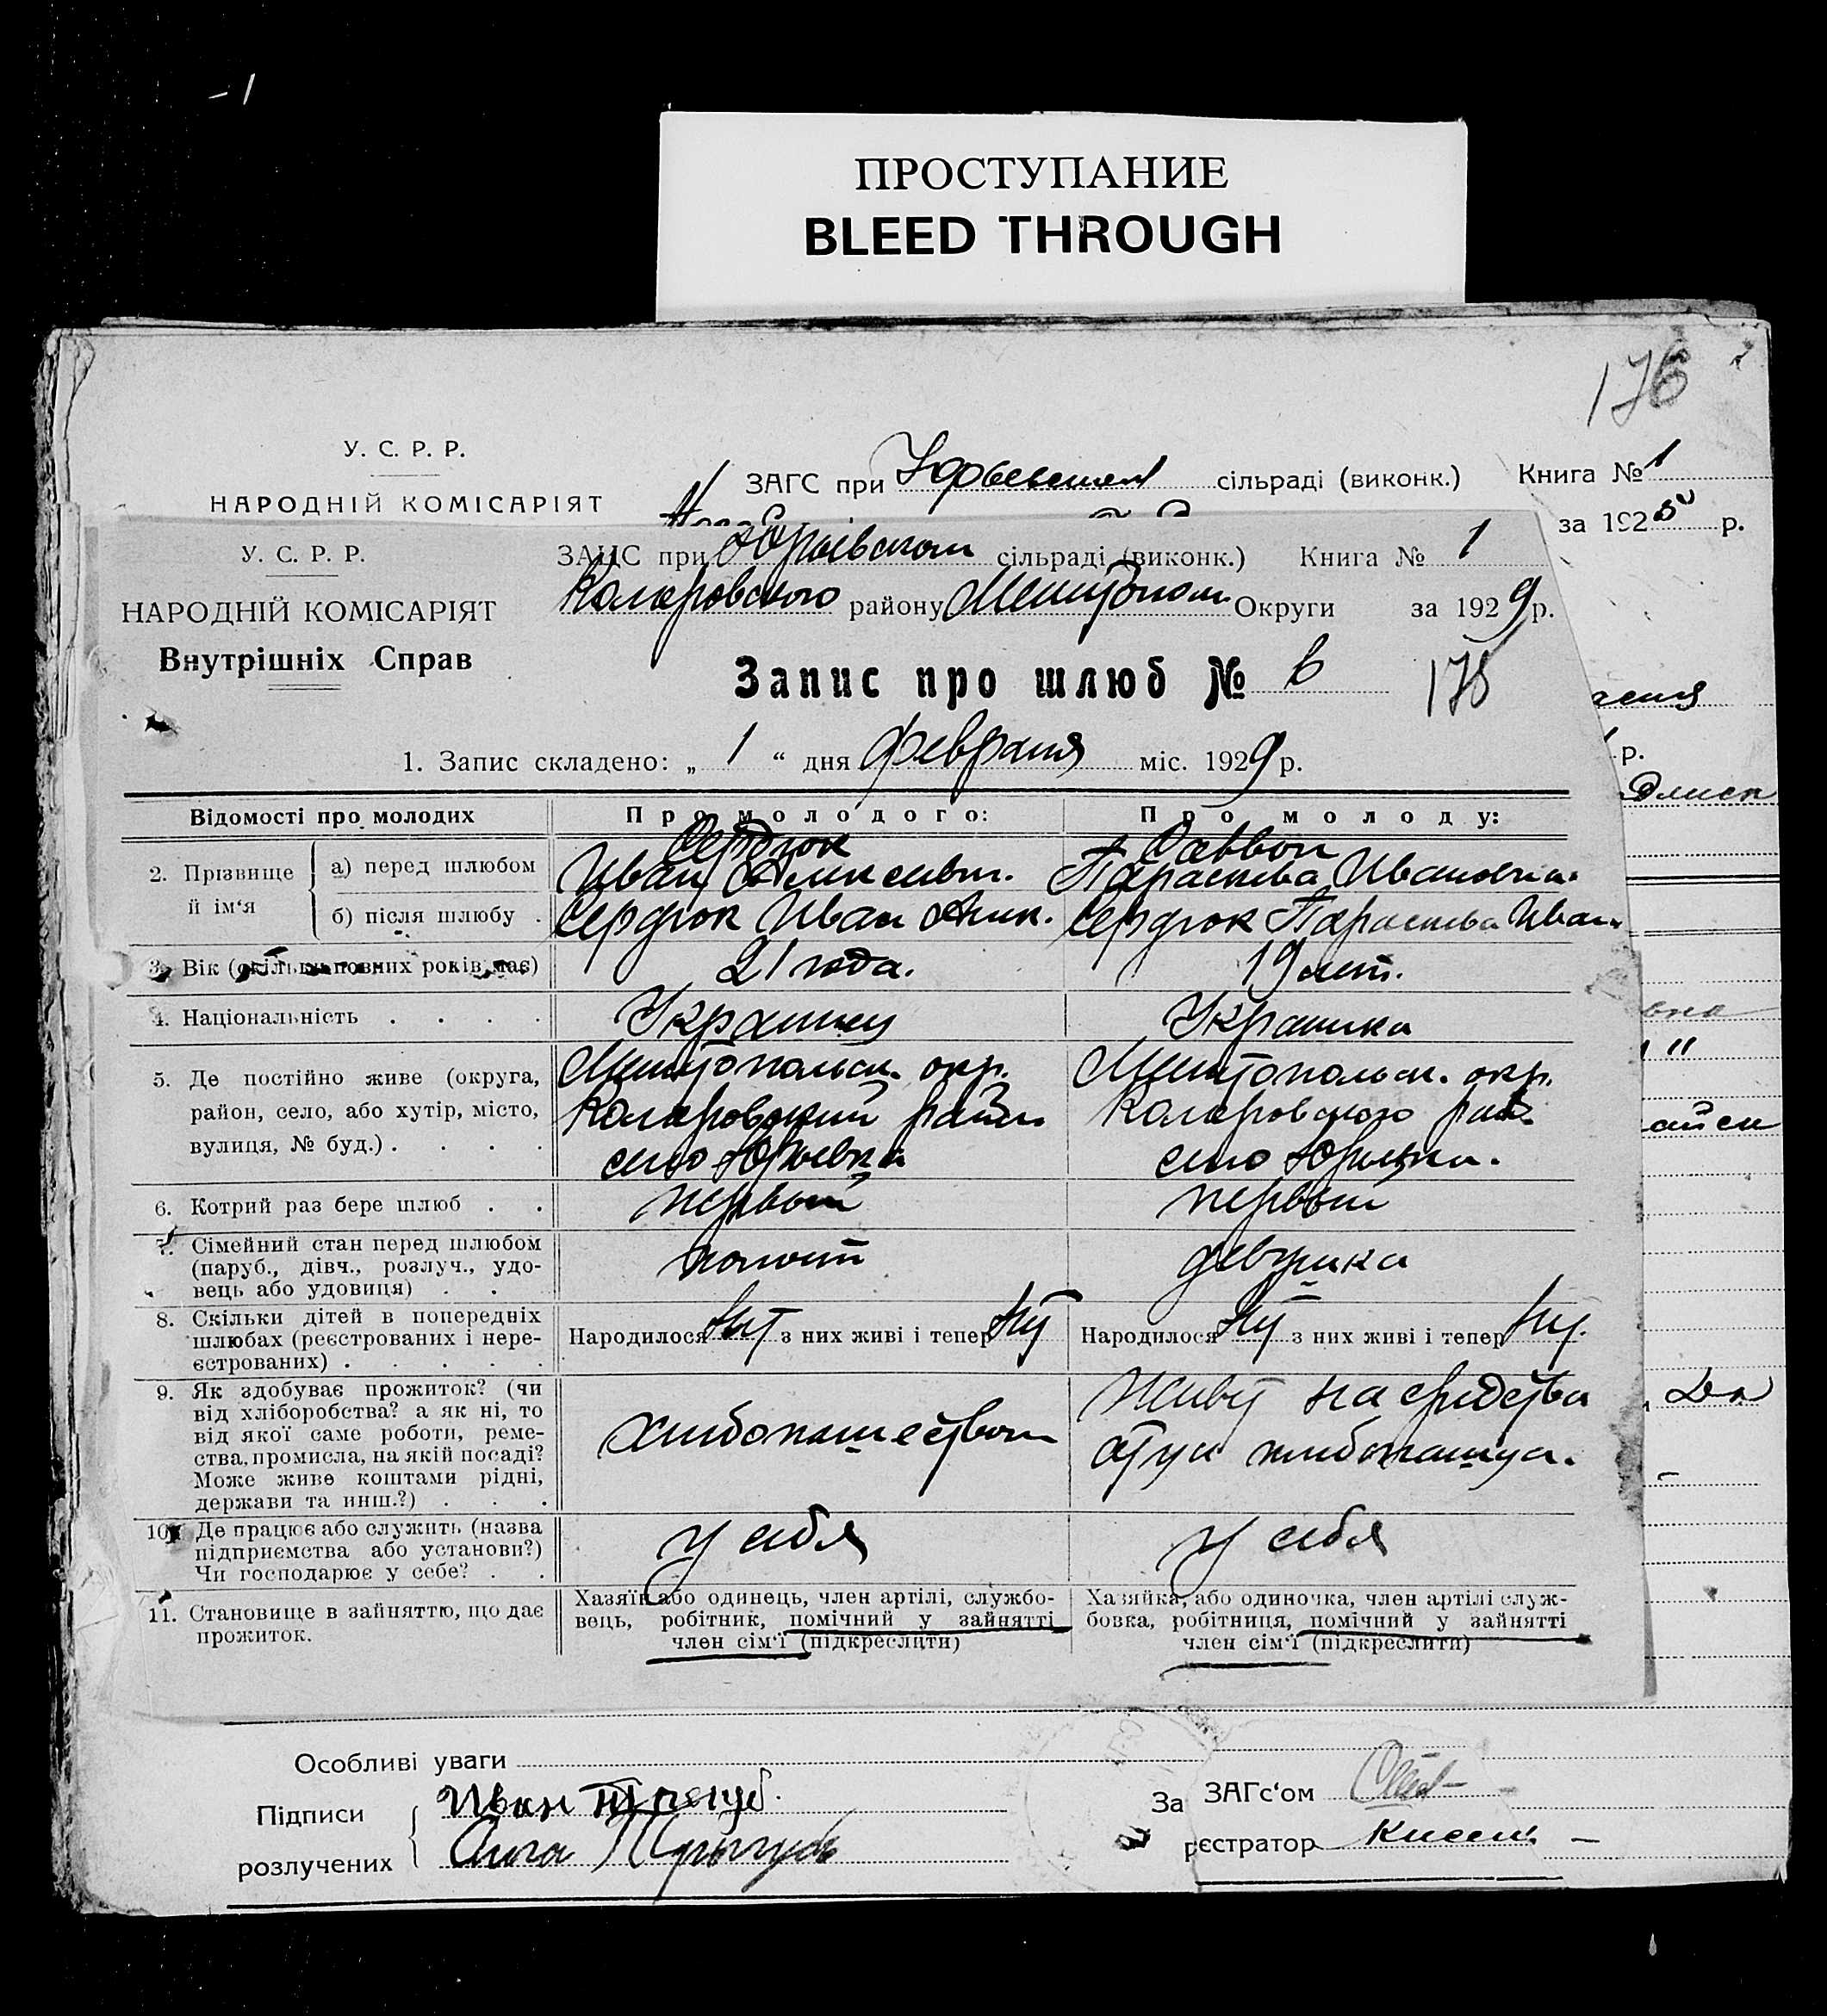 ПРОСТУПАНИЕ
BLEED THROUGH
176
У. С. Р. Р.
НАРОДНІЙ КОМІСАРІЯТ
ЗАГС при Юрьевском сільраді (виконк.) Книга № 1
за 1925 р.
У. С. Р. Р.
НАРОДНІЙ КОМІСАРІЯТ
Внутрішніх Справ
ЗАЦС при Юрьевском сільраді (виконк.) Книга № 1
Коларовского району Мелитопол. Округи за 1929 р.
Запис про шлюб № 6
178
1. Запис складено: „ 1 “ дня февраля міс. 1929 р.
Відомості про молодих Про молодого: Про молоду:
2. Прізвище й ім‘я
а) перед шлюбом Сердюк Иван Алексеев. Саввон Параскева Ивановна.
б) після шлюбу . Сердюк Иван Алек. Сердюк Параскева Иван.
3. Вік (скільки повних років має) 21 года. 19 лет.
4. Національність . . . . Украинец Украинка
5. Де постійно живе (округа, район, село, або хутір, місто, вулиця, № буд.) . . . .
Мелитопольск. окр. Мелитопольск. окр.
Коларовский район Коларовского рай.
село Юрьевка село Юрьевка.
6. Котрий раз бере шлюб . . первый первый
7. Сімейний стан перед шлюбом
(паруб., дівч., розлуч., удо-
вець або удовиця) . .
холост девушка
8. Скільки дітей в попередніх
шлюбах (реєстрованих і нере-
єстрованих) . . . . .
Народилося Нет з них живі і тепер Нет Народилося Нет з них живі і тепер Нет.
9. Як здобуває прожиток? (чи
від хліборобства? а як ні, то
від якої саме роботи, реме-
ства, промисла, на якій посаді?
Може живе коштами рідні,
держави та инш.?) . . .
хлебопашеством
Живет на средства
отца хлебопашца.
10. Де працює або служить (назва
підприємства або установи?)
Чи господарює у себе? . .
у себя у себя
11. Становище в зайняттю, що дає
прожиток.
Хазяїн або одинець, член артілі, службо-
вець, робітник, помічний у зайнятті
член сім‘ї (підкреслити)
Хазяйка, або одиночка, член артілі служ-
бовка, робітниця, помічний у зайнятті
член сім‘ї (підкреслити)
Особливі уваги
Підписи
розлучених
Иван
За ЗАГс‘ом
рєстратор